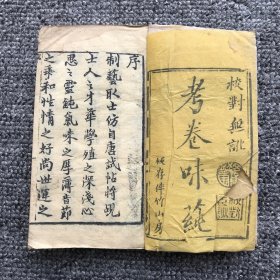 校對無訛
考卷味蓺
序
制藝取士仿自唐試帖將覘
士人之才華學殖之深淺心
思之靈鈍氣味之厚薄音節
之乖和性情之好尚世運之